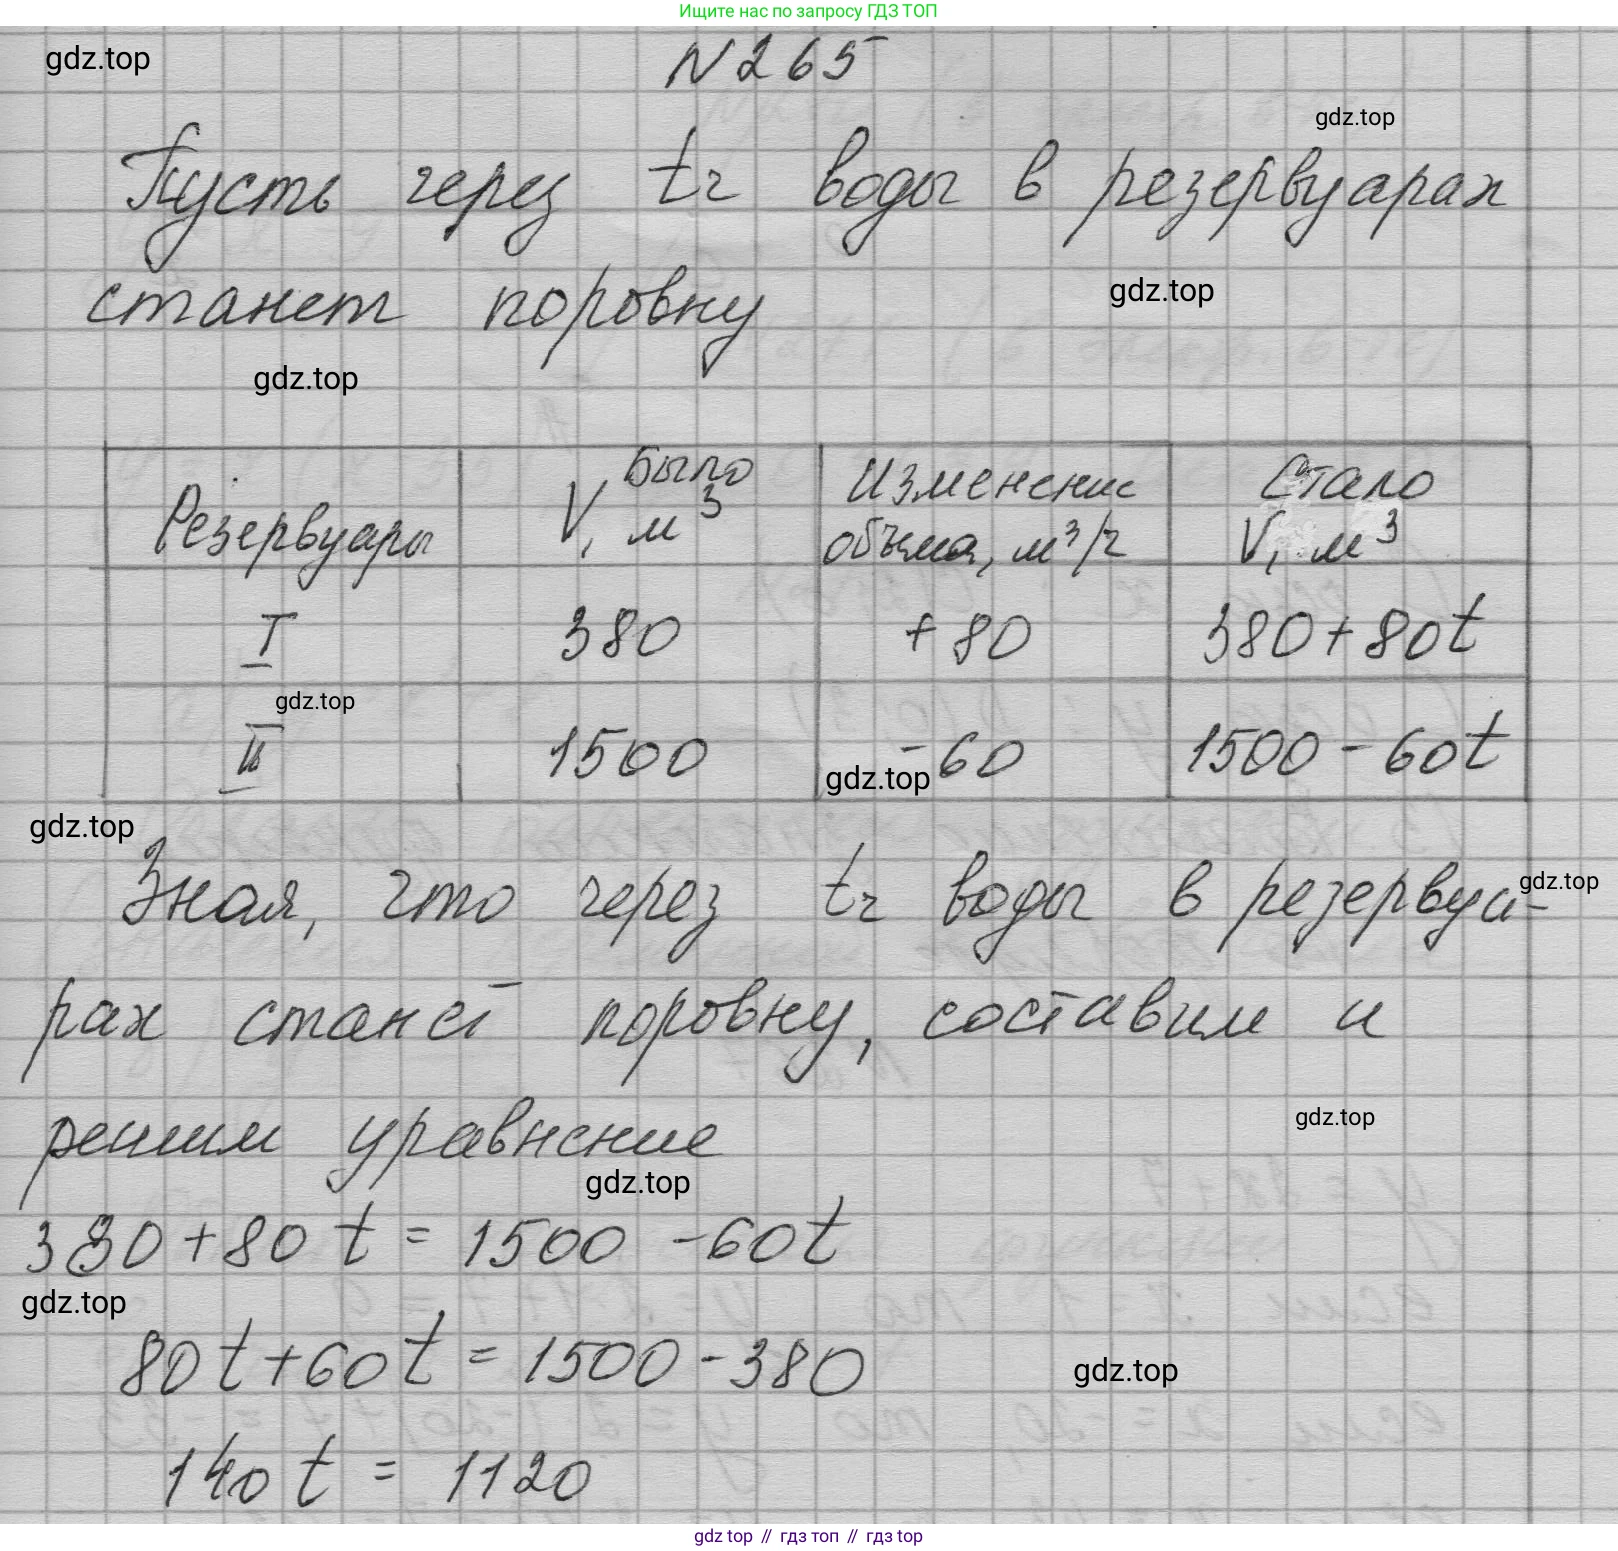 Ищите нас по запросу ГДЗ ТОП
gdz.top
N 265
gdz.top
Пусть через t ч воды в резервуарах
станет поровну
gdz.top
gdz.top
Резервуары | Было V, м³ | Изменение объема, м³/ч | Стало V, м³
I | 380 | +80 | 380+80t
gdz.top
II | 1500 | -60 | 1500-60t
gdz.top
gdz.top
Зная, что через t ч воды в резервуа-
gdz.top
рах станет поровну, составим и
решим уравнение
gdz.top
gdz.top
380+80t=1500-60t
gdz.top
80t+60t=1500-380
gdz.top
140t=1120
gdz top // гдз топ // гдз top